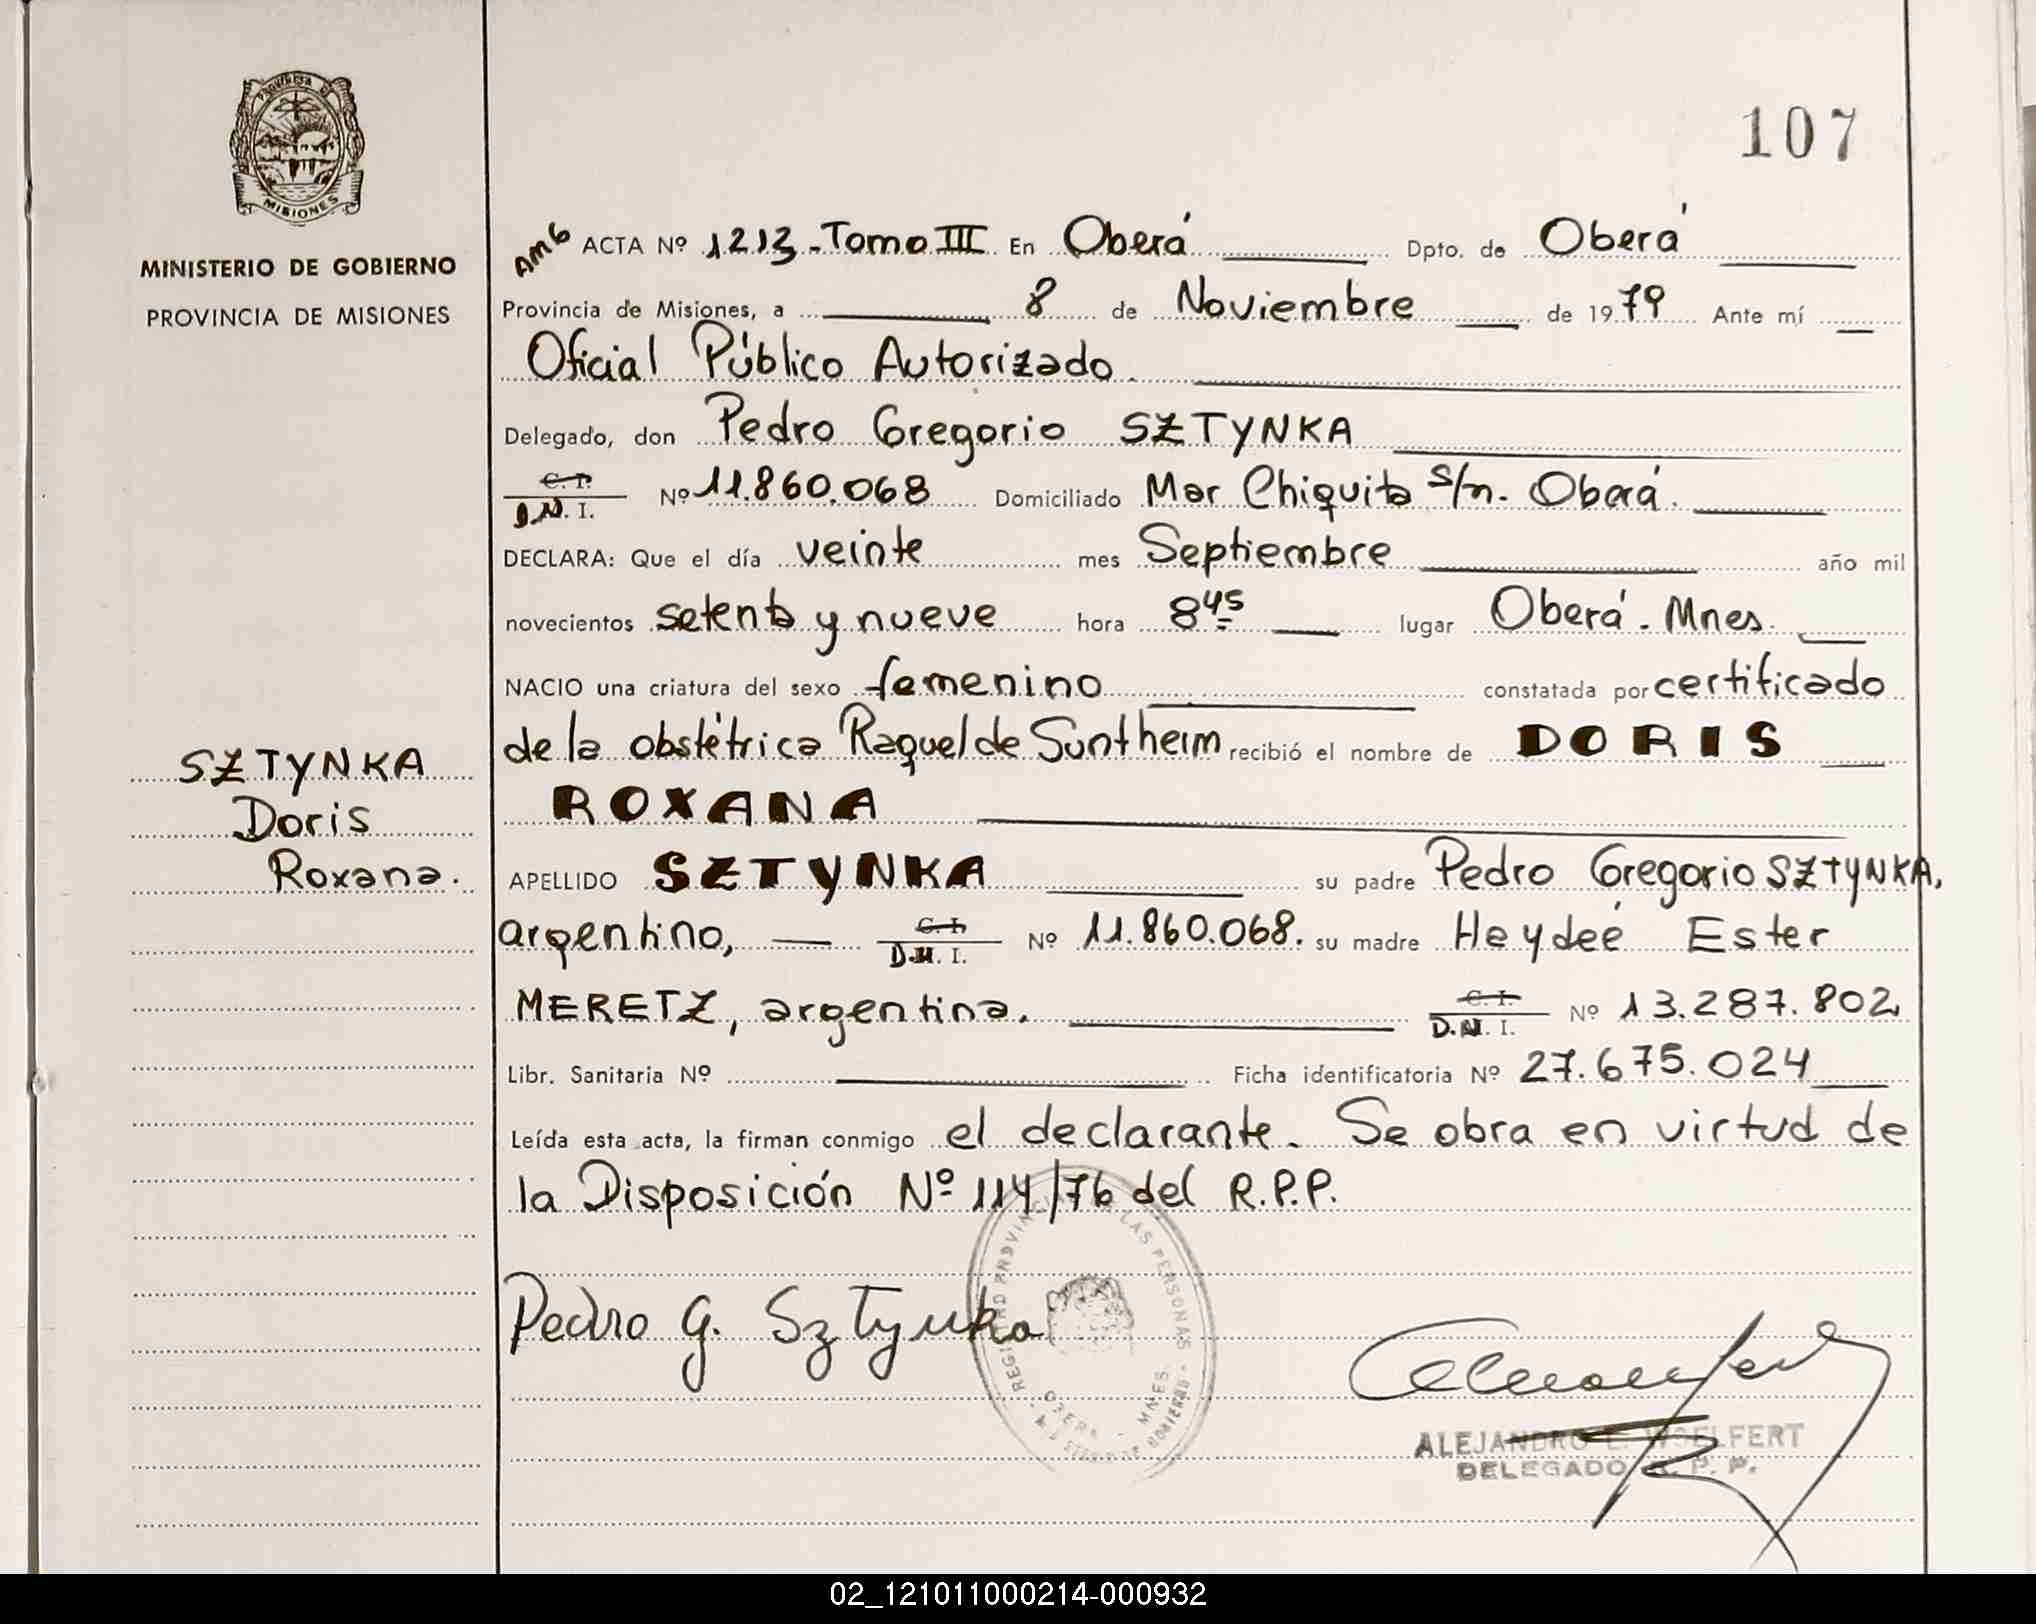 PROVINCIA DE
MISIONES
MINISTERIO DE GOBIERNO
PROVINCIA DE MISIONES
107
AMG ACTA Nº 1213 - Tomo III En Oberá Dpto. de Oberá
Provincia de Misiones, a 8 de Noviembre de 1979 Ante mí
Oficial Público Autorizado.
Delegado, don Pedro Gregorio SZTYNKA
C. I.
D.N. I. Nº 11.860.068 Domiciliado Mar Chiquita s/n. Oberá.
DECLARA: Que el día veinte mes Septiembre año mil
novecientos setenta y nueve hora 8 45 lugar Oberá - Mnes.
NACIO una criatura del sexo femenino constatada por certificado
de la obstétrica Raquel de Suntheim recibió el nombre de DORIS
ROXANA
SZTYNKA
Doris
Roxana.
APELLIDO SZTYNKA su padre Pedro Gregorio SZTYNKA,
argentino, C. I. D.N. I. Nº 11.860.068. su madre Heydeé Ester
MERETZ, argentina. C. I. D.N. I. Nº 13.287.802
Libr. Sanitaria Nº Ficha identificatoria Nº 27.675.024
Leída esta acta, la firman conmigo el declarante. Se obra en virtud de
la Disposición Nº 114/76 del R.P.P.
Pedro G. Sztynka
REGISTRO PROVINCIAL DE LAS PERSONAS
OBERA - MNES.
MINISTERIO DE GOBIERNO
ALEJANDRO E. WOELFERT
DELEGADO R. P. P.
02_121011000214-000932